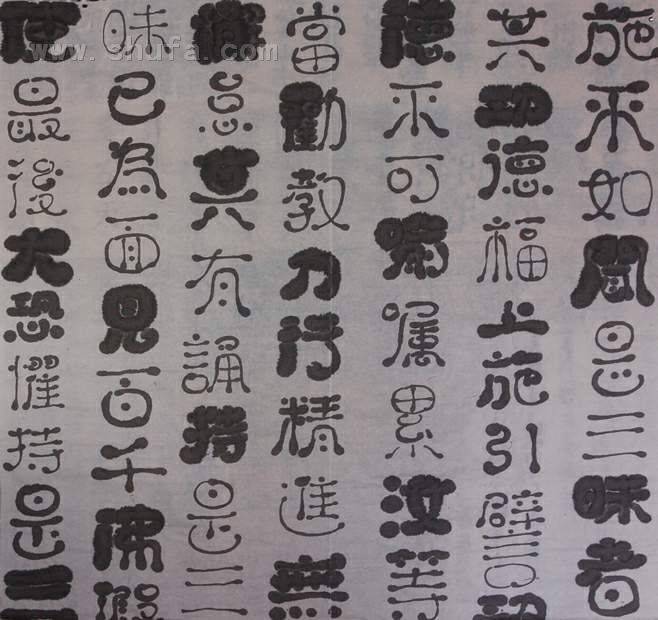 施不如聞是三昧者
其功德福上施引譬功
德不可喻囑累汝等
當勸教力行精進無
懈怠其有誦持是三
昧已為面見百千佛假
使最後大恐懼持是三
www.shufa.com